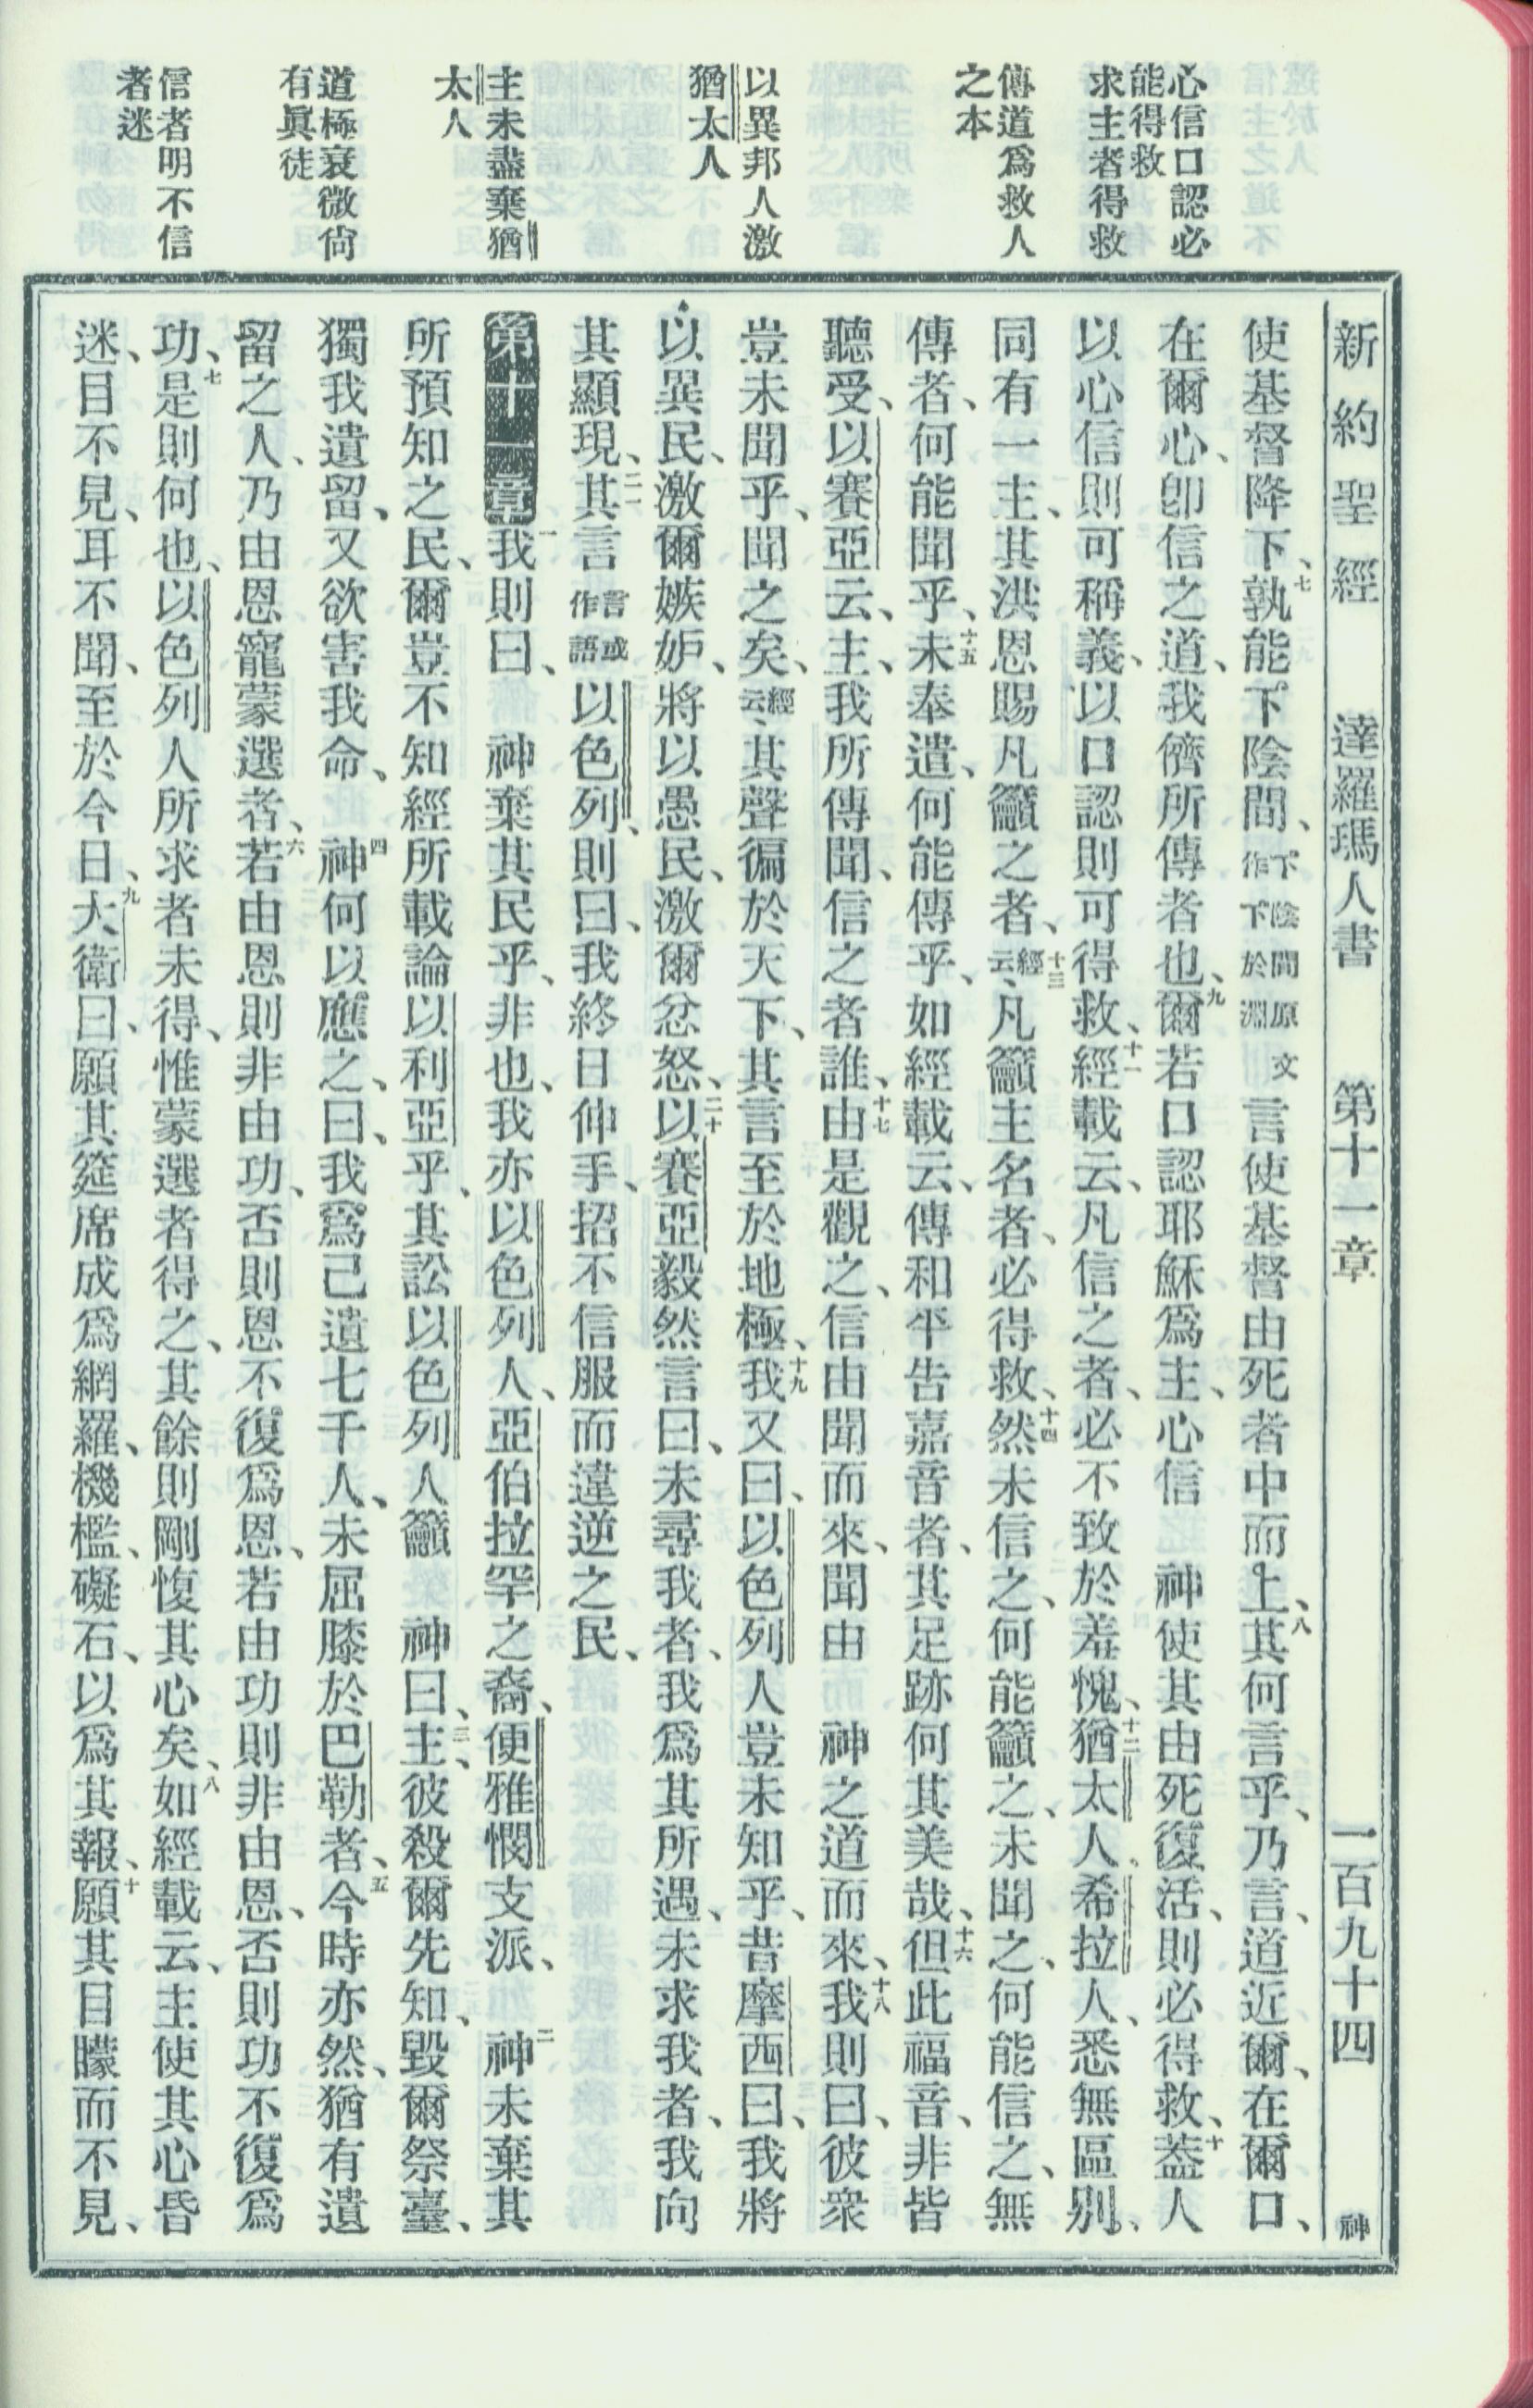 心信口認必
能得救
求主者得救
傳道爲救人
之本
以異邦人激
猶太人
主未盡棄猶
太人
道極衰微尙
有眞徒
信者明不信
者迷
新約聖經 達羅瑪人書 第十一章 一百九十四 神
使基督降下、七孰能下陰間、下陰間原文作下於淵言使基督由死者中而上、八其何言乎、乃言、道近爾、在爾口、
在爾心、卽信之道、我儕所傳者也、九爾若口認耶穌爲主、心信 神使其由死復活、則必得救、十蓋人
以心信則可稱義、以口認則可得救、十一經載云、凡信之者、必不致於羞愧、十二猶太人、希拉人、悉無區別、
同有一主、其洪恩賜凡籲之者、十三經云、凡籲主名者、必得救、十四然未信之、何能籲之、未聞之、何能信之、無
傳者、何能聞乎、十五未奉遣、何能傳乎、如經載云、傳和平告嘉音者、其足跡何其美哉、十六但此福音、非皆
聽受、以賽亞云、主、我所傳聞、信之者誰、十七由是觀之、信由聞而來、聞由 神之道而來、十八我則曰、彼衆
豈未聞乎、聞之矣、經云、其聲徧於天下、其言至於地極、十九我又曰、以色列人豈未知乎、昔摩西曰、我將
以異民、激爾嫉妒、將以愚民、激爾忿怒、二十以賽亞毅然言曰、未尋我者、我爲其所遇、未求我者、我向
其顯現、二一其言言或作語以色列、則曰、我終日伸手、招不信服而違逆之民、
第十一章一我則曰、 神棄其民乎、非也、我亦以色列人、亞伯拉罕之裔、便雅憫支派、二 神未棄其
所預知之民、爾豈不知經所載論以利亞乎、其訟以色列人籲 神曰、三主、彼殺爾先知、毀爾祭臺、
獨我遺留、又欲害我命、四 神何以應之、曰、我爲己遺七千人、未屈膝於巴勒者、五今時亦然、猶有遺
留之人、乃由恩寵蒙選者、六若由恩則非由功、否則恩不復爲恩、若由功則非由恩、否則功不復爲
功、七是則何也、以色列人所求者未得、惟蒙選者得之、其餘則剛愎其心矣、八如經載云、主使其心昏
迷、目不見、耳不聞、至於今日、九大衛曰、願其筵席成爲網羅、機檻、礙石、以爲其報、十願其目矇而不見、